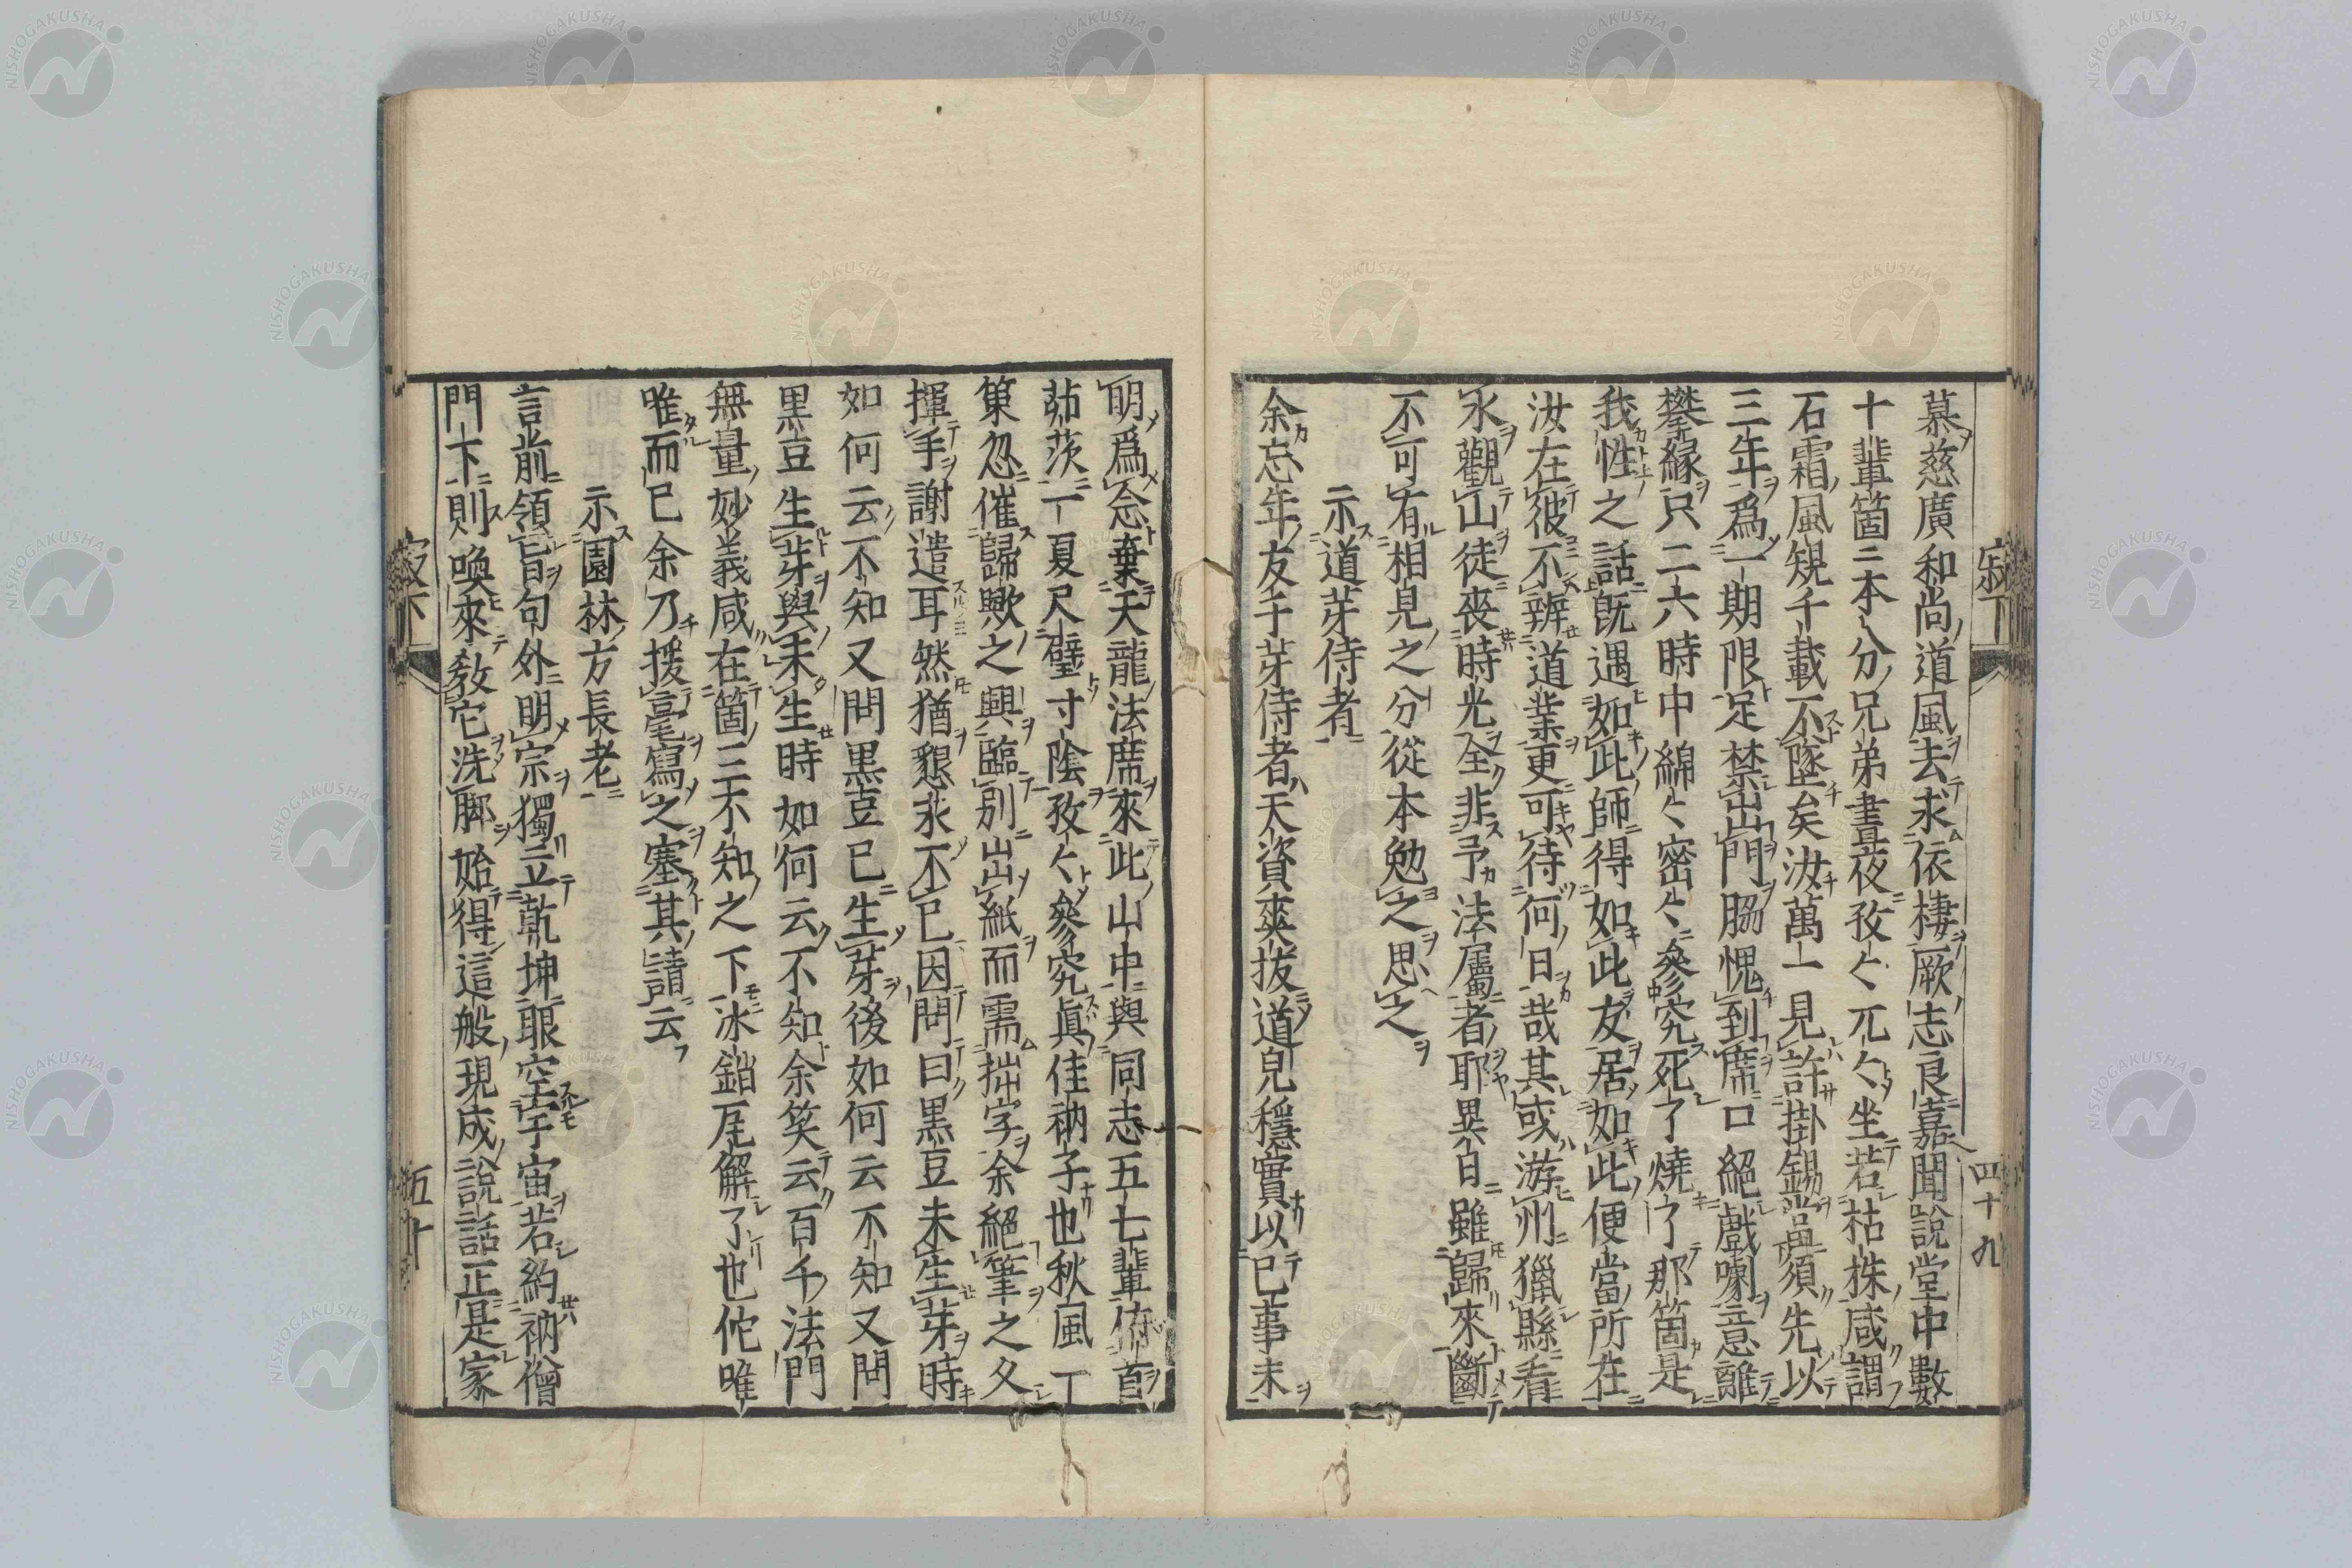 慕慈廣和尚道風去求依棲厥志良嘉聞說堂中數
十輩箇二本分兄弟晝夜孜々兀々坐若枯株咸謂
石霜風規千載不墜矣汝萬一見許掛錫當須先以
三年爲一期限足禁出門脇愧到席口絕戲喇意離
攀緣只二六時中綿々密々參究死了燒了那箇是
我性之話既遇如此師得如此友居如此便當所在
汝在彼不辨道業更可待何日哉其或游州獵縣看
水觀山徒喪時光全非予法屬者耶異日雖歸來斷
不可有相見之分從本勉之思之
示道芽侍者
余忘年友于芽侍者天資爽拔道皃穩實以已事未
明爲念棄天龍法席來此山中與同志五七輩俯首
茆茨一夏尺璧寸陰孜々參究眞佳衲子也秋風一
策忽催歸歟之興臨別出紙而需拙字余絕筆之久
揮手謝遣耳然猶懇求不已因問曰黑豆未生芽時
如何云不知又問黑豆已生芽後如何云不知又問
黑豆生芽與未生時如何云不知余笑云百千法門
無量妙義咸在箇三不知之下冰銷瓦解了也佗唯
唯而已余乃援毫寫之塞其請云
示園林方長老
言前領旨句外明宗獨立乾坤眼空宇宙若約衲僧
門下則喚來敎它洗脚始得這般現成說話正是家
寂下
四十九
五十
NISHOGAKUSHA